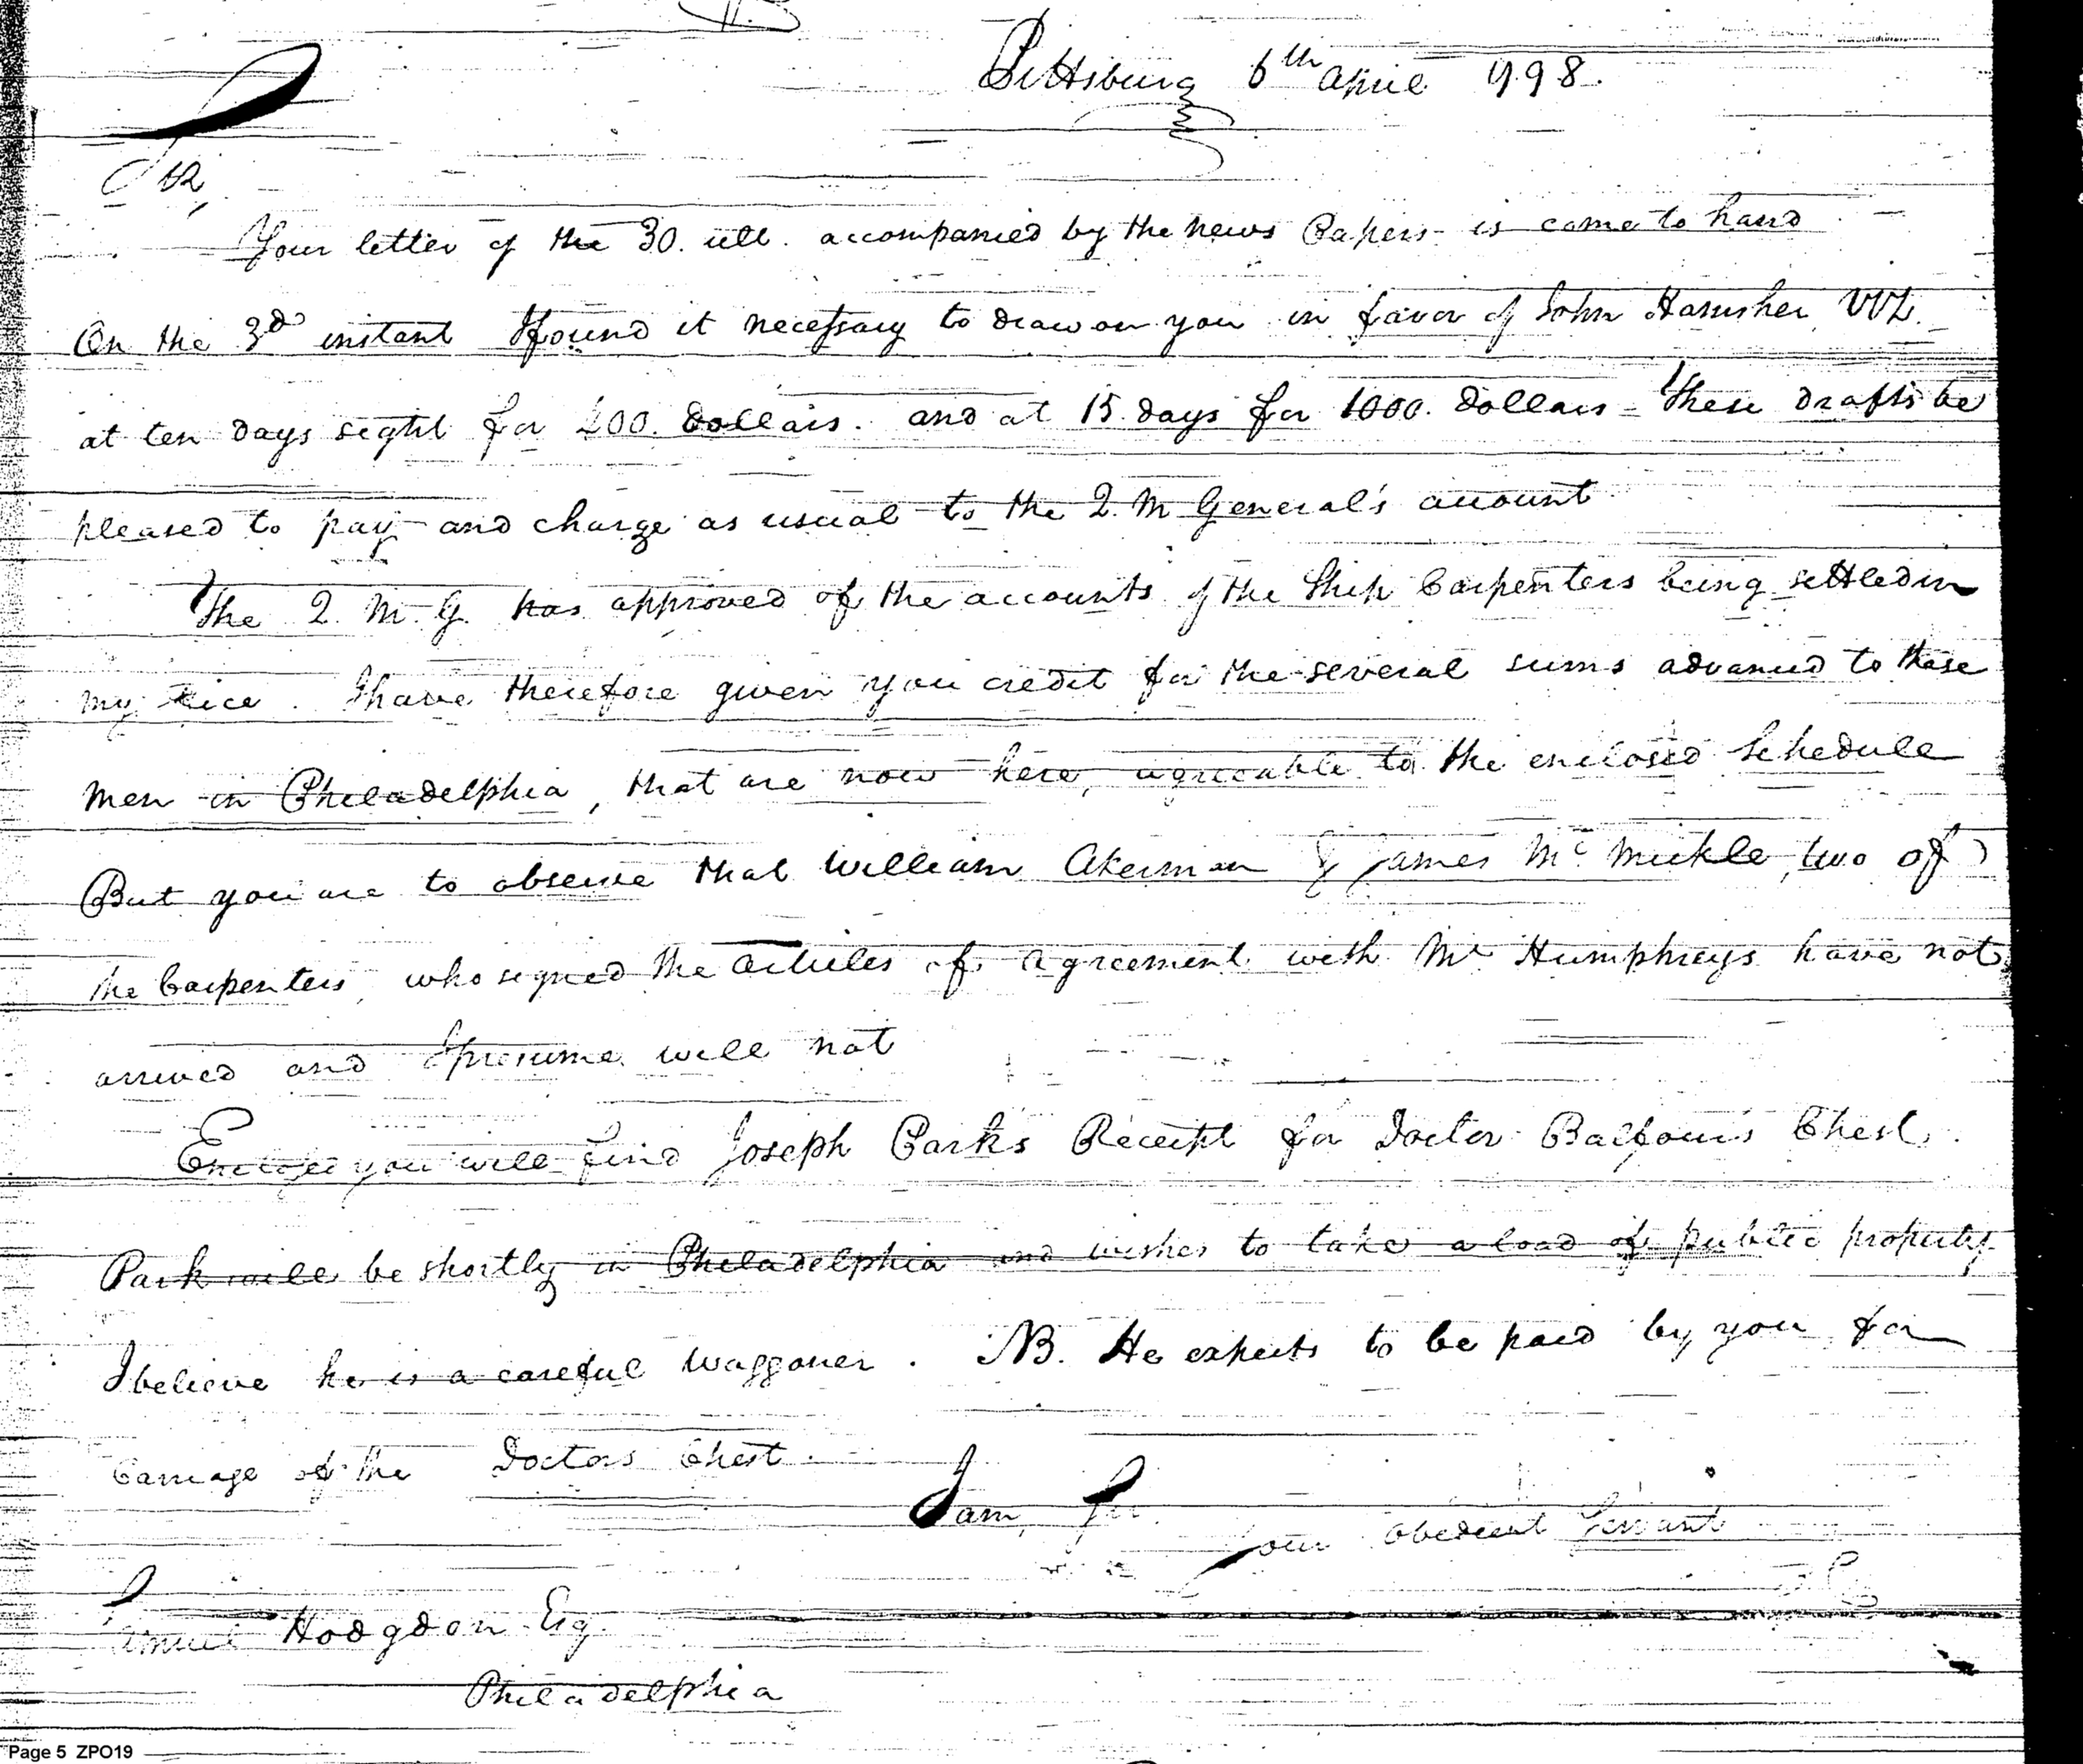 Pittsburg 6th April 1798.
Sir,
Your letter of the 30. ult. accompanied by the news Papers is come to hand
On the 3d instant I found it necessary to draw on you in favor of John Hamsher VIZ.
at ten days sight for 200. dollars. and at 15 days for 1000. Dollars - These drafts be
pleased to pay and charge as usual to the Q. M General's account
The Q. M. G. has approved of the accounts of the Ship Carpenters being settled in
my . I have therefore given you credit for the several sums advanced to these
men in Philadelphia, that are now here, agreeable to the enclosed Schedule
But you are to observe that William Akerman & James Mc Mickle, two of
the Carpenters, who signed the articles of agreement with Mr Humphreys have not
arrived and I presume will not
Enclosed you will find Joseph Park's Receipt for Doctor Balfour's Chest.
Park will be shortly in Philadelphia and wishes to take a load of public property
I believe he is a careful waggoner. NB. He expects to be paid by you for
Carriage of the Doctors Chest.
I am, Sir.
Your obedient Servant
Samuel Hodgdon Esq.
Philadelphia
Page 5 ZPO19